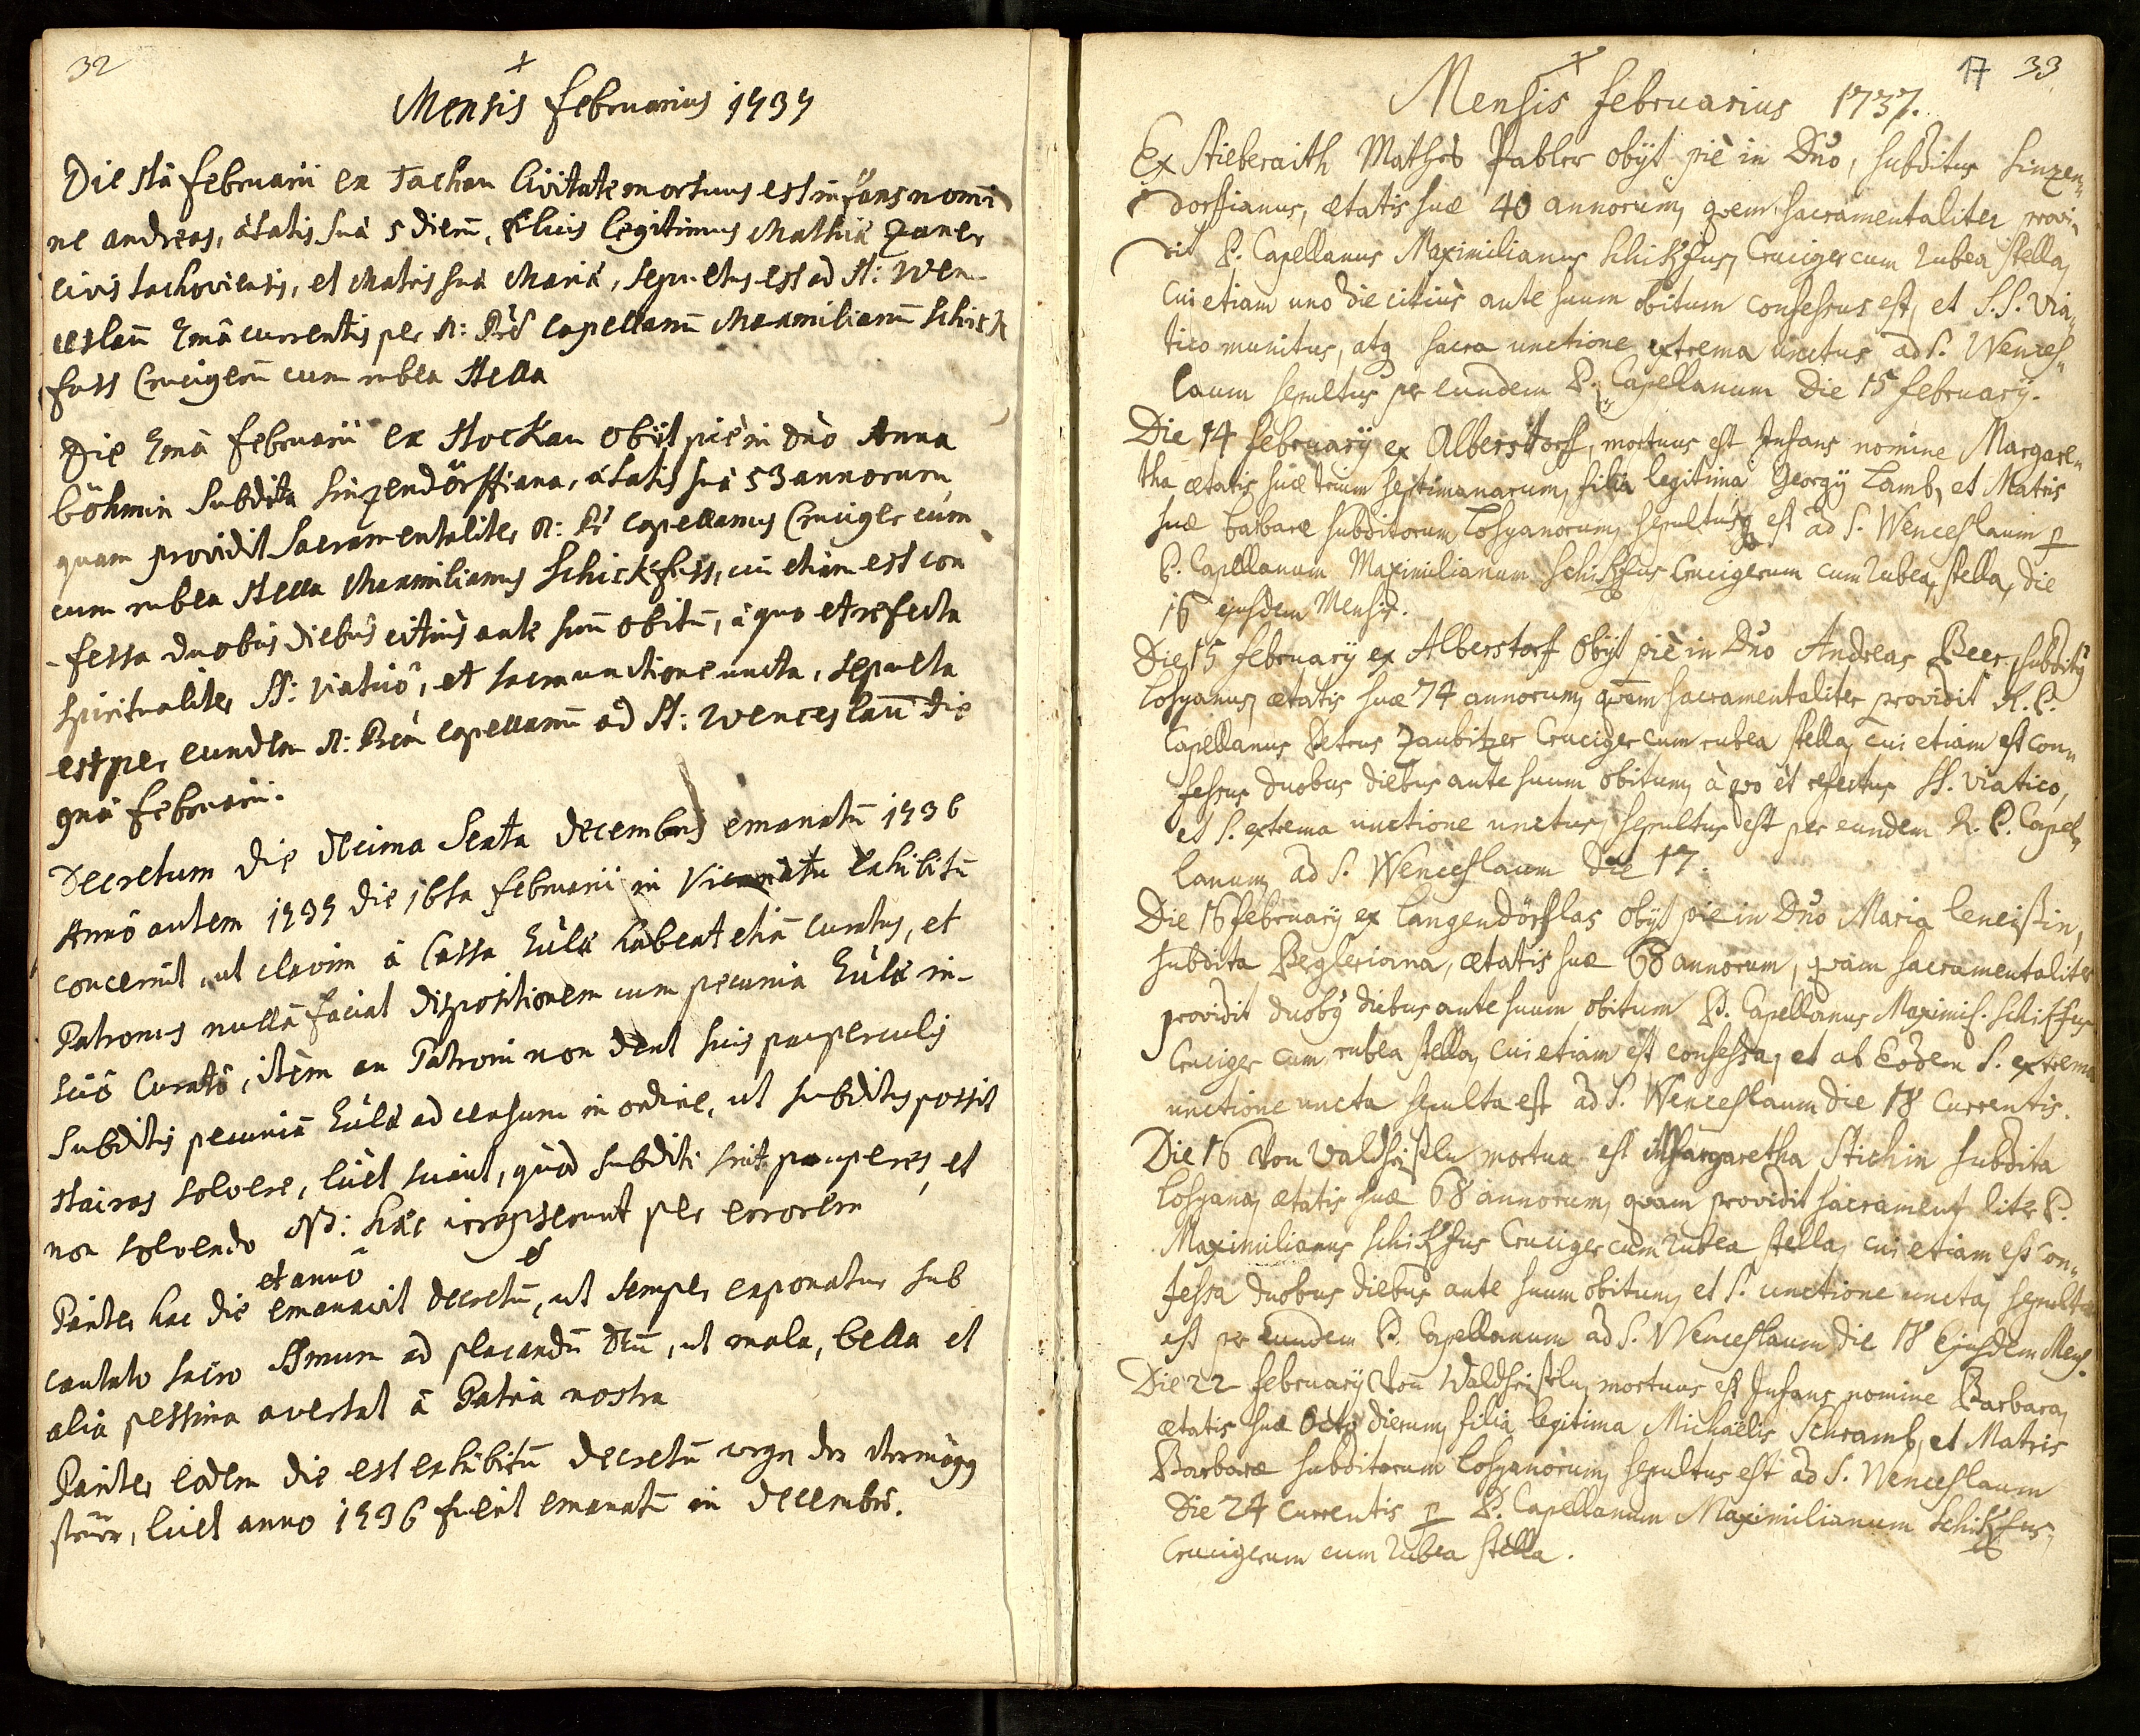 32
+
Mensis Februarius 1737
Die 5ta Februarii ex Tachau Civitate mortuus est infans nomi
ne Andreas, ätatis suä 5 dierū, filius legitimus Mathiä
civis Tachoviensis, et Matris suä Mariä, sepultus est ad St: Wen-
ceslaū 7mâ currentis per R: Prē Capellanū Maximilianū Schick
fuss Crucigerū cum rubea Stella
Die 7mâ Februarii ex Stockau obiit piè in Dno Anna
Böhmin Subdita Sinzendörffiana, ätatis suä 53 annorum,
quam providit Sacramentaliter R: Pr Capellanus Cruciger cum
cum rubea Stella Maximilianus Schickfuss, cui etiam est con
-fessa duobus diebus citiùs ante suū obitū, à quo et refecta
spiritualiter SS: Viaticô, et sacra unctione uncta, sepulta
est per eundem R: Prēm Capellanū ad St: Wenceslaū die
9nâ Februarii.
Decretum die decima Sexta Decembris emanatū 1736
Annô autem 1737 die 16ta Februarii in Vicariatu exhibitū
concernit, ut clavim à Cassa Eccłä habeat etiā curatus, et
Patronus nullā faciat dispositionem cum pecunia Eccłä in-
sciô Curatô, item an Patroni non dent suis pauperculis
Subditis pecuniā Eccłä ad censum in ordine, ut subditus possit
solvere, licet sciant, quòd subditi sint pauperes, et
non solvendo NB: häc irrepserunt per errorem
et annô
Pariter hac die emanavit decretū, ut semper exponatur sub
cantato sacro SSmum ad placandū Deū, ut mala, bella et
alia pessima avertat à Patria nostra
Pariter eodem die est exhibitū Decretū wegen der Vermögen
steüer, licet anno 1736 fuerit emanatū in Decembri.
17 33
+
Mensis Februarius 1737.
Ex Stieberaith Mathes Pabler obijt piè in Dno, subditus Sinzen„
dorffianus, ætatis suæ 40 annorum, quem sacramentaliter provi„
dit P. Capellanus Maximilianus Schikfus, Cruciger cum rubea stella,
cui etiam uno die citiùs ante suum obitum confessus est, et S.S. via„
tico munitus, atq sacra unctione extrema unctus ad S. Wences„
laum sepultus per eundem P. Capellanum die 15 february.
Die 14 february ex Alberstorff, mortuus est Infans nomine Margare„
tha ætatis suæ trium septimanarum, filia legitima Georgij Lamb, et Matris
suæ barbaræ subditorum Losyanorum, sepultus est ad S. Wenceslaum p
P. Capellanum Maximilianum Schikfus Crucigerum cum rubea, stella, die
16 ejusdem Mensis.
Die 15 february ex Alberstorf obijt piè in Dno Andreas Beer, subdit9
Losyanus, ætatis suæ 74 annorum, quem sacramentaliter providit R. P.
Capellanus Petrus Zaubitzer Cruciger cum rubea stella, cui etiam est con„
fessus duobus diebus ante suum obitum, à quo et refectus SS. viatico,
et S. extrema unctione unctus, sepultus est per eundem R. P. Capel„
lanum, ad S. Wenceslaum die 17.
Die 16 february ex Langendörflas obijt pie in Dno Maria
subdita Pegleriana, ætatis suæ 68 annorum, quam sacramentaliter
providit duob9 diebus ante suum obitum P. Capellanus Maximil. Schikfus
Cruciger cum rubea stella, cui etiam est confessa, et ab Eodem S. extrema
unctione uncta sepulta est ad S. Wenceslaum die 18 Currentis.
Die 16 Von Waldheiseln mortua est Margaretha Stichin subdita
Losyana, ætatis suæ 68 annorum, quam providit sacramentliter P.
Maximilianus Schikfus Cruciger cum rubea stella, cui etiam est con„
fessa duobus diebus ante suum obitum, et S. unctione uncta, sepulta
est per Eundem P. Capellanum ad S. Wenceslaum die 18 Ejusdem Mens.
Die 22 february Von Waldheiseln, mortuus est Infans nomine Barbara,
ætatis suæ Octo dierum, filia legitima Michaëlis Schramb, et Matris
Barbaræ subditorum Losyanorum, sepultus est ad S. Wenceslaum
Die 24 Currentis p P. Capellanum Maximilianum Schikfus,
Crucigerum cum rubea stella.